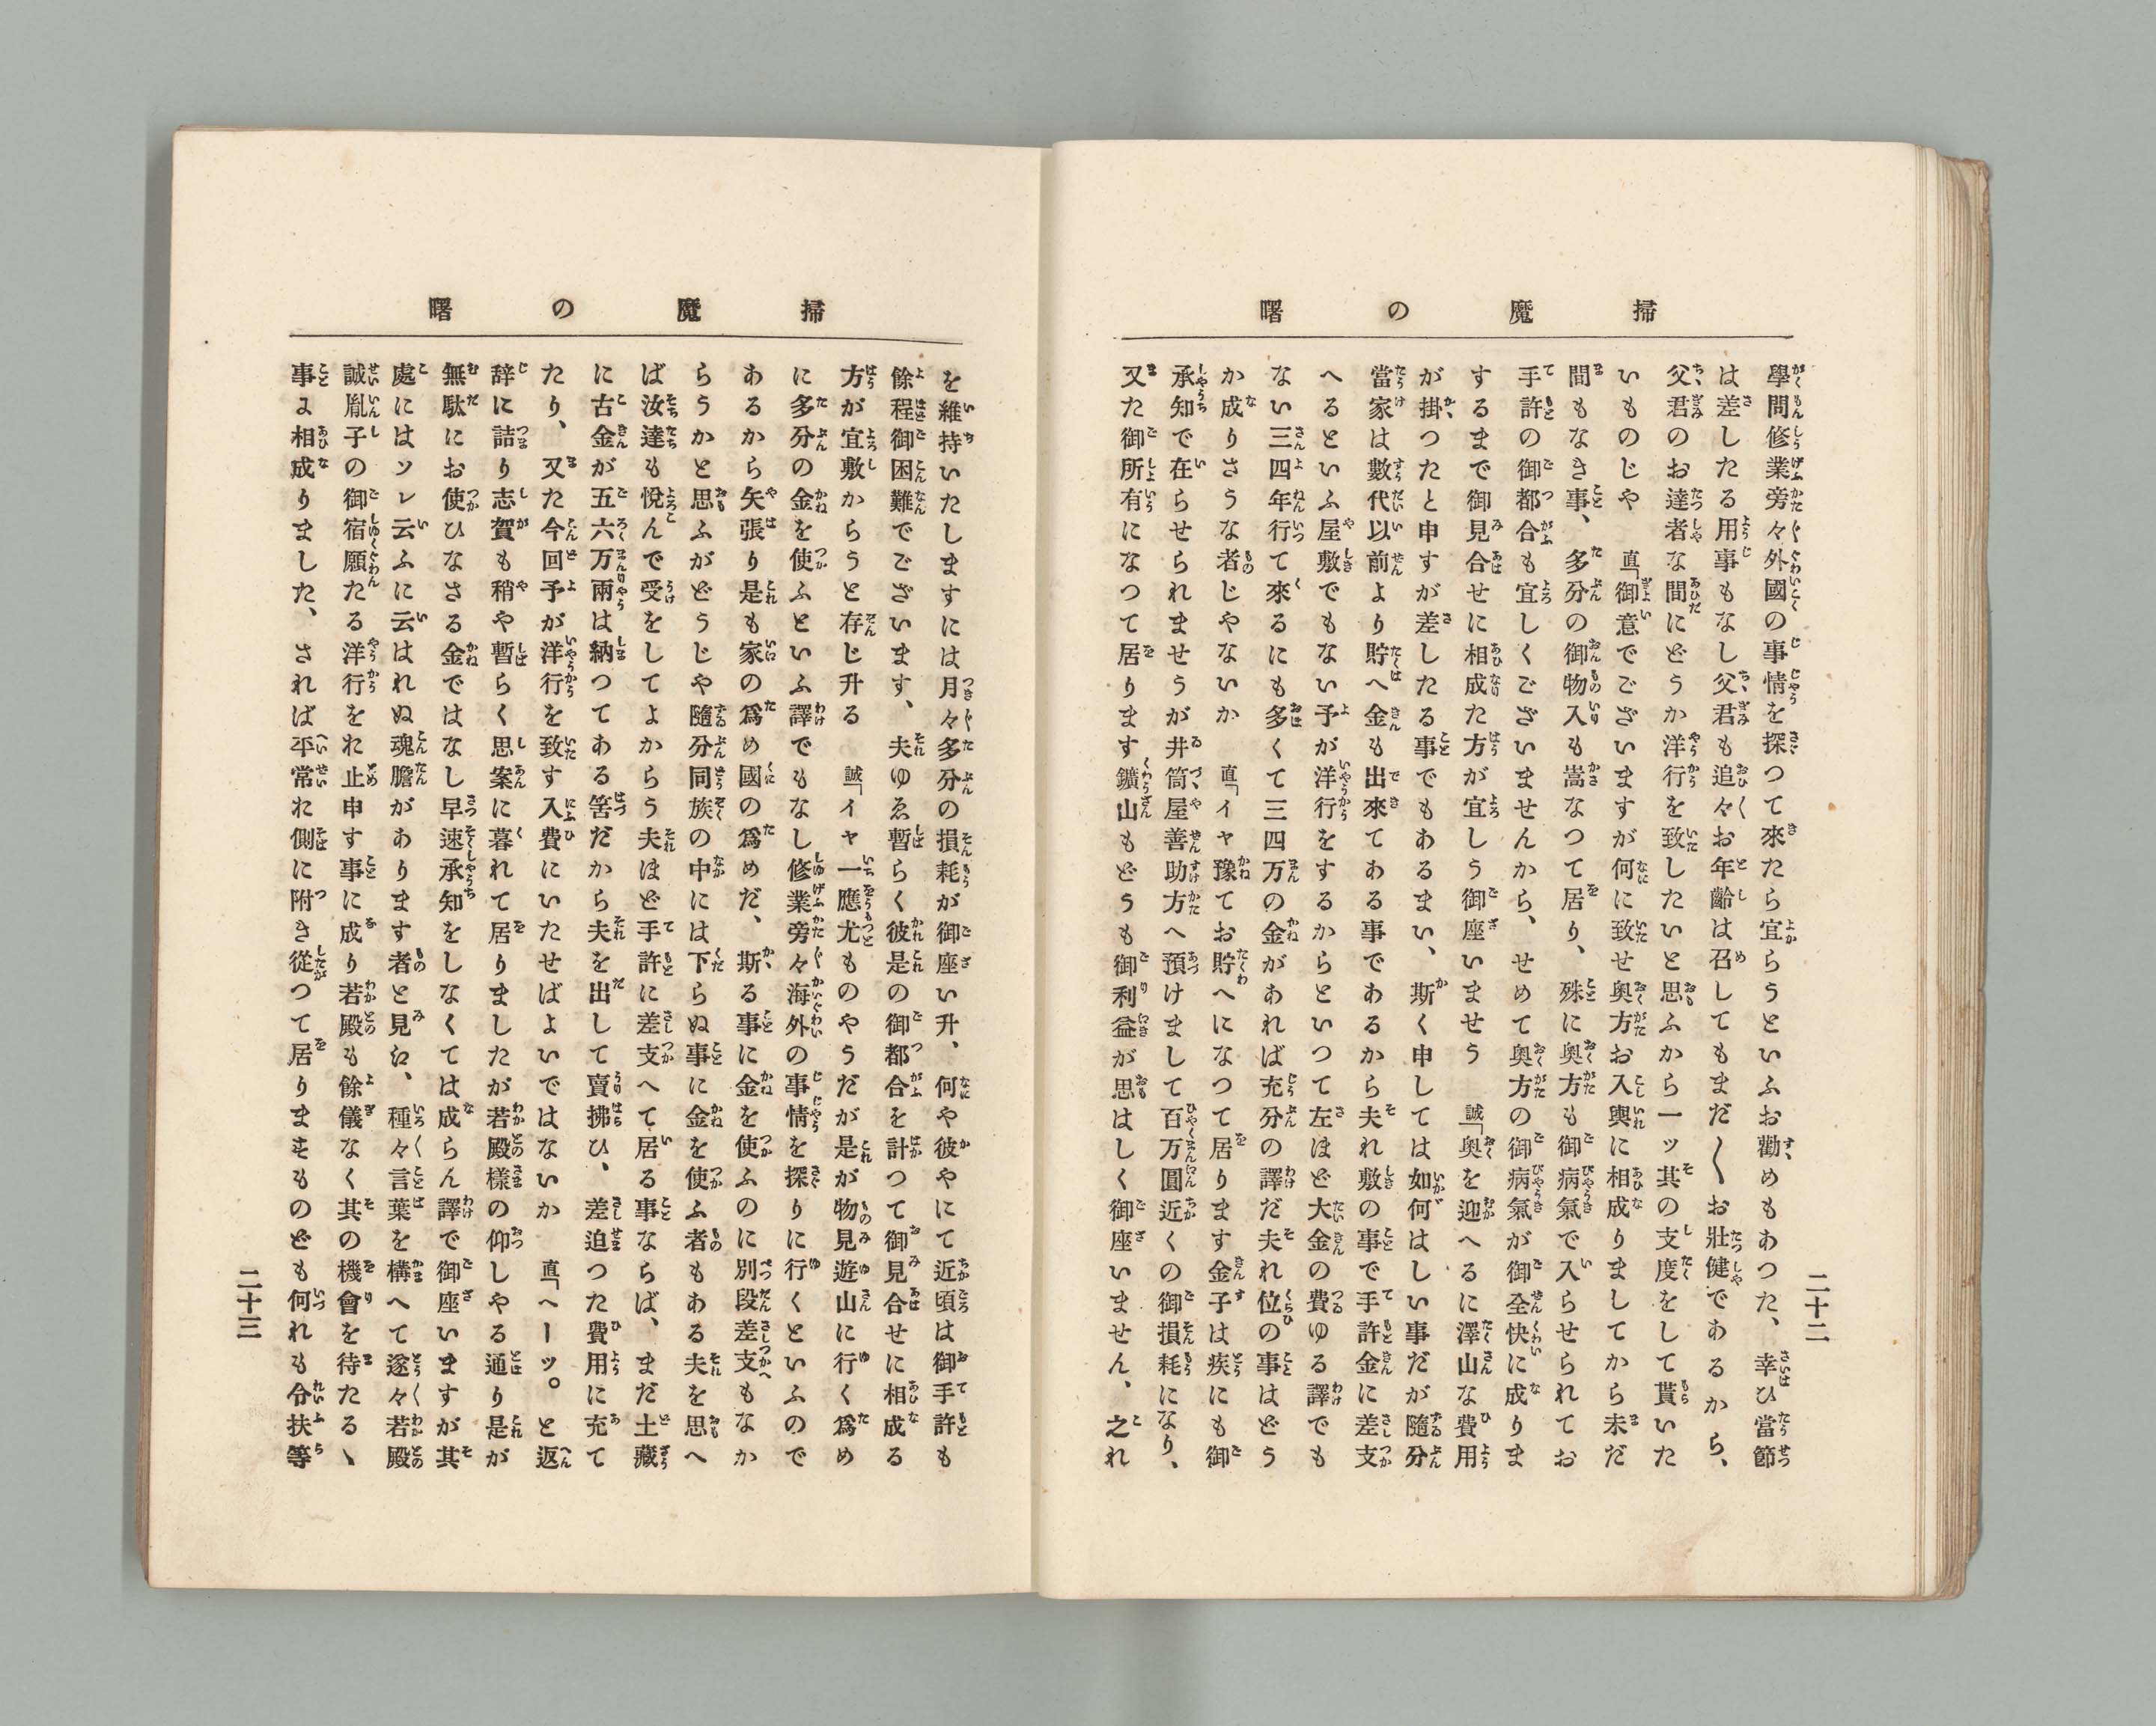 掃魔の曙
學問修業旁々外國の事情を探つて來たら宜らうといふお勸めもあつた、幸ひ當節
は差したる用事もなし父君も追々お年齡は召してもまだ〱お壯健であるから、
父君のお達者な間にどうか洋行を致したいと思ふから一ッ其の支度をして貰いた
いものじや　直「御意でございますが何に致せ奥方お入輿に相成りましてから未だ
間もなき事、多分の御物入も嵩なつて居り、殊に奥方も御病氣で入らせられてお
手許の御都合も宜しくございませんから、せめて奥方の御病氣が御全快に成りま
するまで御見合せに相成た方が宜しう御座いませう　誠「奥を迎へるに澤山な費用
が掛つたと申すが差したる事でもあるまい、斯く申しては如何はしい事だが隨分
當家は數代以前より貯へ金も出來てある事であるから夫れ敷の事で手許金に差支
へるといふ屋敷でもない予が洋行をするからといつて左ほど大金の費ゆる譯でも
ない三四年行つて來るにも多くて三四万の金があれば充分の譯だ夫れ位の事はどう
か成りさうな者じやないか　直「イヤ豫てお貯へになつて居ります金子は疾にも御
承知で在らせられませうが井筒屋善助方へ預けまして百万圓近くの御損耗になり、
又た御所有になつて居ります鑛山もどうも御利益が思はしく御座いません、之れ
二十二
掃魔の曙
を維持いたしますには月々多分の損耗が御座い升、何や彼やにて近頃は御手許も
餘程御困難でございます、夫ゆゑ暫らく彼是の御都合を計つて御見合せに相成る
方が宜敷からうと存じ升る　誠「イヤ一應尤ものやうだが是が物見遊山に行く爲め
に多分の金を使ふといふ譯でもなし修業旁々海外の事情を探りに行くといふので
あるから矢張り是も家の爲め國の爲めだ、斯る事に金を使ふのに別段差支もなか
らうかと思ふがどうじや隨分同族の中には下らぬ事に金を使ふ者もある夫を思へ
ば汝達も悅んで受をしてよからう夫ほど手許に差支へて居る事ならば、まだ土藏
に古金が五六万兩は納つてある筈だから夫を出して賣拂ひ、差迫つた費用に充て
たり、又た今回予が洋行を致す入費にいたせばよいではないか　直「ヘーッ。と返
辞に詰り志賀も稍や暫らく思案に暮れて居りましたが若殿樣の仰しやる通り是が
無駄にお使ひなさる金ではなし早速承知をしなくては成らん譯で御座いますが其
處にはソレ云ふに云はれぬ魂膽があります者と見ね、種々言葉を構へて遂々若殿
誠胤子の御宿願たる洋行をれ止申す事に成り若殿も餘儀なく其の機會を待たる丶
事よ相成りました、されば平常れ側に附き從つて居りまするものども何れも令扶等
二十三